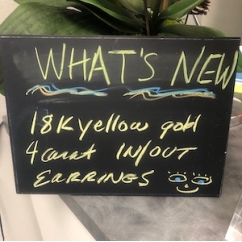 WHAT'S NEW
18K yellow gold
4 carat IN/OUT
EARRINGS